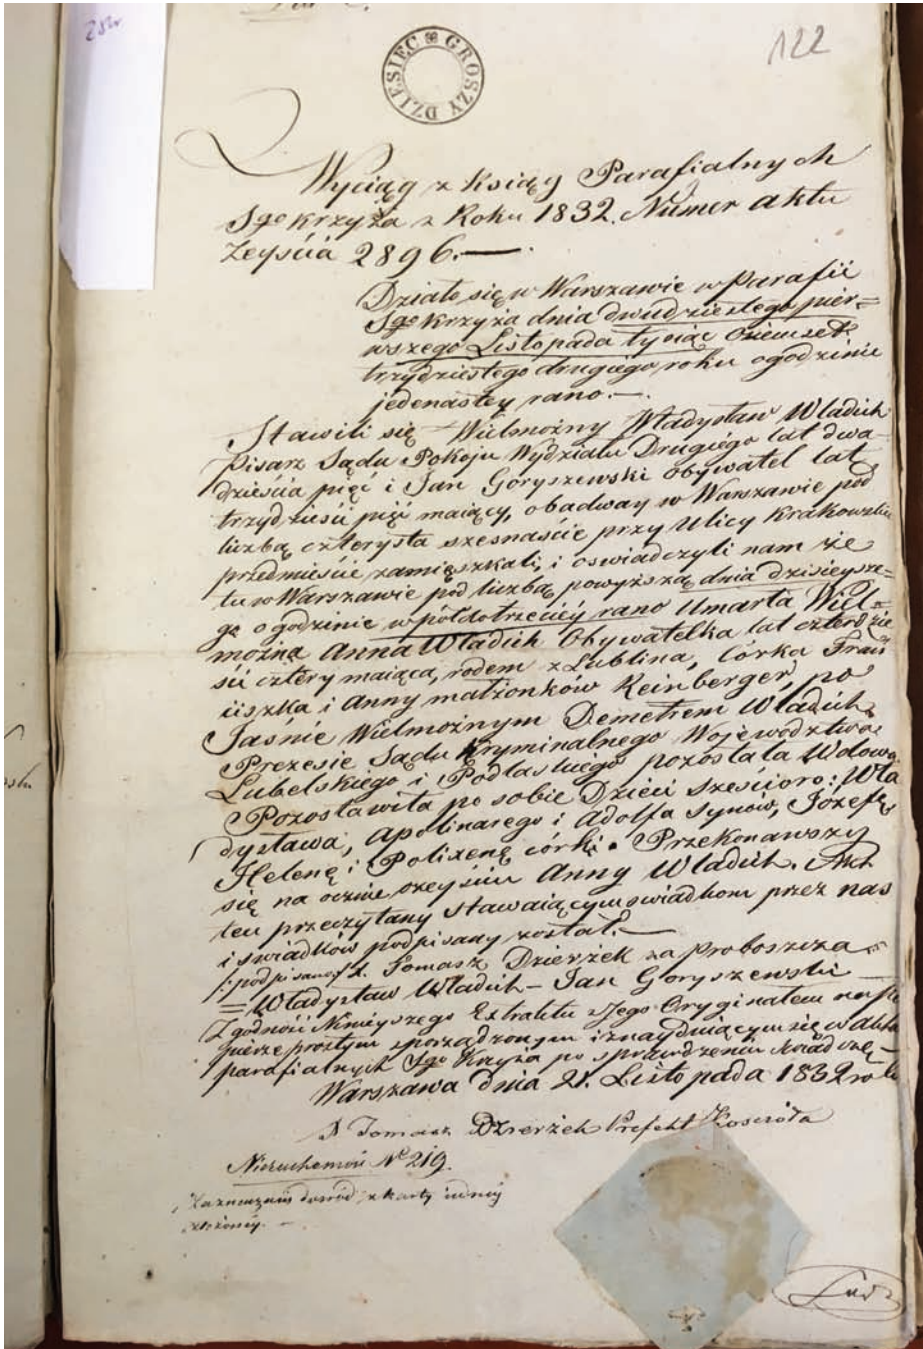 28w
122
DZIESIĘC GROSZY
Wyciąg z Ksiąg Parafialnych
Sgo Krzyża z Roku 1832. Numer aktu
Zeyścia 2896.—
Działo się w Warszawie w Parafii
Sgo Krzyża dnia dwudziestego pier=
wszego Listopada tysiąc ośmset
trzydziestego drugiego roku o godzinie
jedenastey rano.—
Stawili się Wielmożny Władysław Wladich
Pisarz Sądu Pokoju Wydziału Drugiego lat dwa-
dzieścia pięć i Jan Goryszewski Obywatel lat
trzydzieści pięć maiący, obadway w Warszawie pod
liczbą czterysta szesnaście przy Ulicy Krakowskie
przedmieście zamieszkali, i oświadczyli nam że
tu w Warszawie pod liczbą powyższą dnia dzisieysze-
go o godzinie w pół do trzeciéy rano Umarła Wiel=
można Anna Wladich Obywatelka lat czterdzie
ści cztery maiąca, rodem z Lublina, Córka Fran
ciszka i Anny małżonków Reinberger, po
Jaśnie Wielmożnym Demetrem Wladich
Prezesie Sądu Kryminalnego Województwa
Lubelskiego i Podlaskiego pozostała Wdowa.
Pozostawiła po sobie Dzieci sześcioro: Wła
dysława, Apolinarego i Adolfa Synów, Józefę
Helenę i Polixenę córki. Przekonawszy
się na ocznie o zeyściu Anny Wladich. Akt
ten przeczytany stawaiącym świadkom przez nas
i świadków podpisany został.—
/:podpisano:/ X. Tomasz Dzierżek za Proboszcza
= Władysław Wladich – Jan Goryszewski —
Zgodność Ninieyszego Extraktu z Jego Oryginałem na pa
pierze prostym sporządzonym i znayduiącym się w aktach
parafialnych Sgo Krzyża po sprawdzeniu świadczę —
Warszawa dnia 21. Listopada 1832 roku
X Tomasz Dzierżek Prefekt Kościoła
Nieruchomość No 219.
dowód z karty